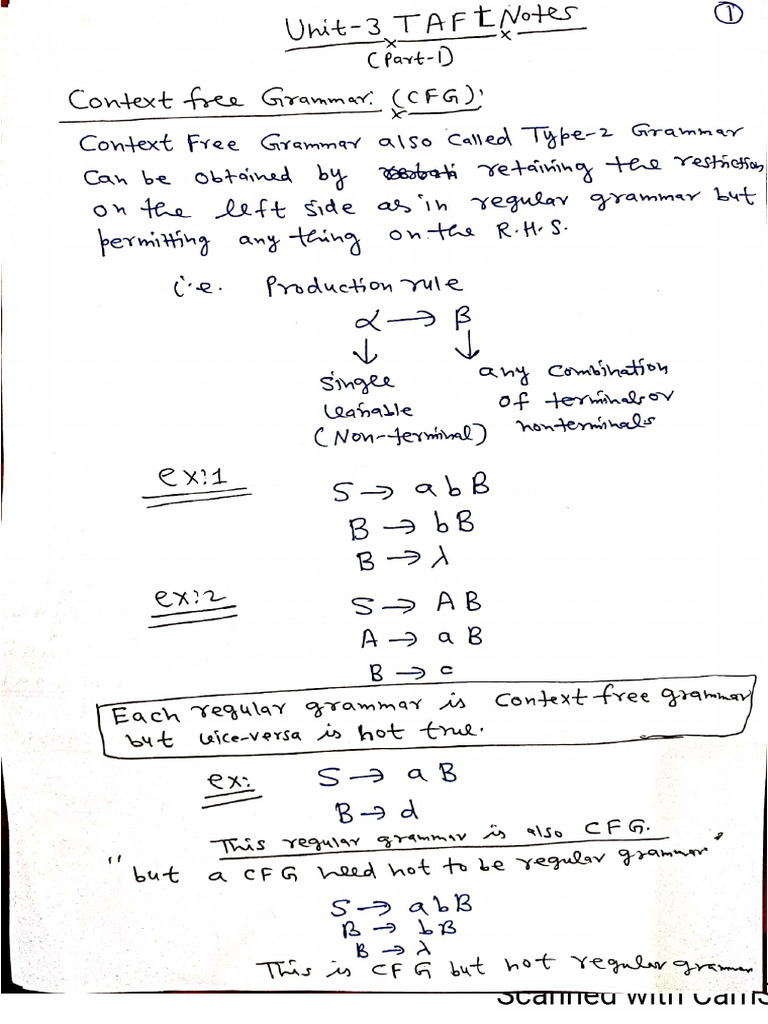 Unit-3 TAFL Notes
①
(Part-1)
Context free Grammar: (CFG):
Context Free Grammar also called Type-2 Grammar
Can be obtained by retaining the restriction
on the left side as in regular grammar but
permitting any thing on the R.H.S.
i.e. Production rule
α → β
↓ ↓
Single any combination
variable of terminals or
(Non-terminal) nonterminals
ex:1
S → abB
B → bB
B → λ
ex:2
S → AB
A → aB
B → c
Each regular grammar is Context free grammar
but vice-versa is not true.
ex: S → aB
B → d
This regular grammar is also CFG.
"but a CFG need not to be regular grammar"
S → abB
B → bB
B → λ
This is CFG but not regular grammar